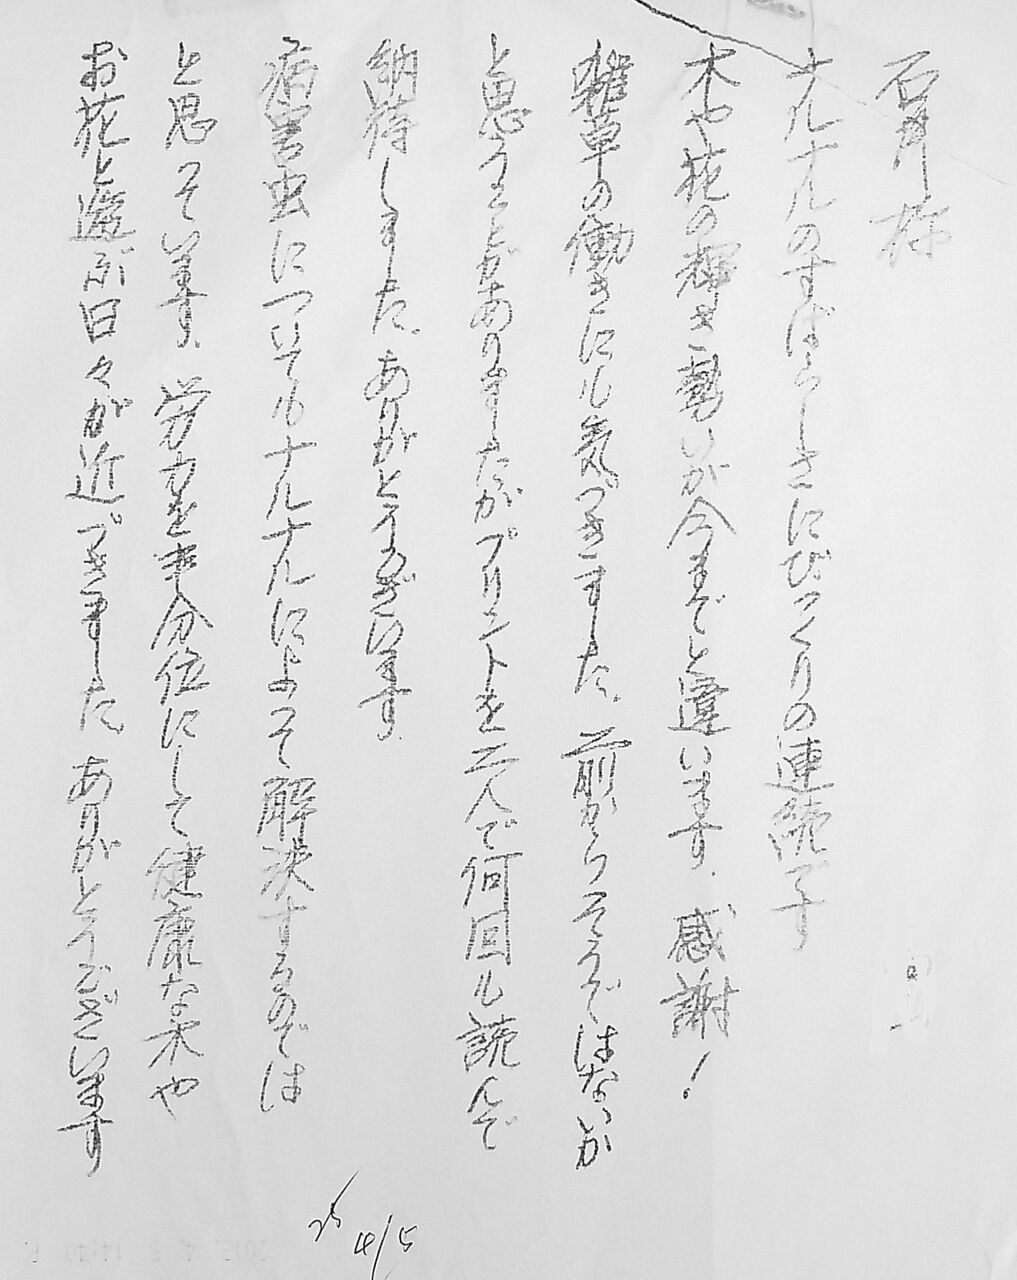 石井様
ナルナルのすばらしさにびっくりの連続です
木や花の輝き勢いが今までと違います。感謝!
雑草の働きにも気づきました。前からそうではないか
と思うことがありましたがプリントを二人で何回も読んで
納得しました。ありがとうございます。
病害虫についてもナルナルによって解決するのでは
と思っています。労力を半分位にして健康な木や
お花と遊ぶ日々が近づきました。ありがとうございます
25 4/5